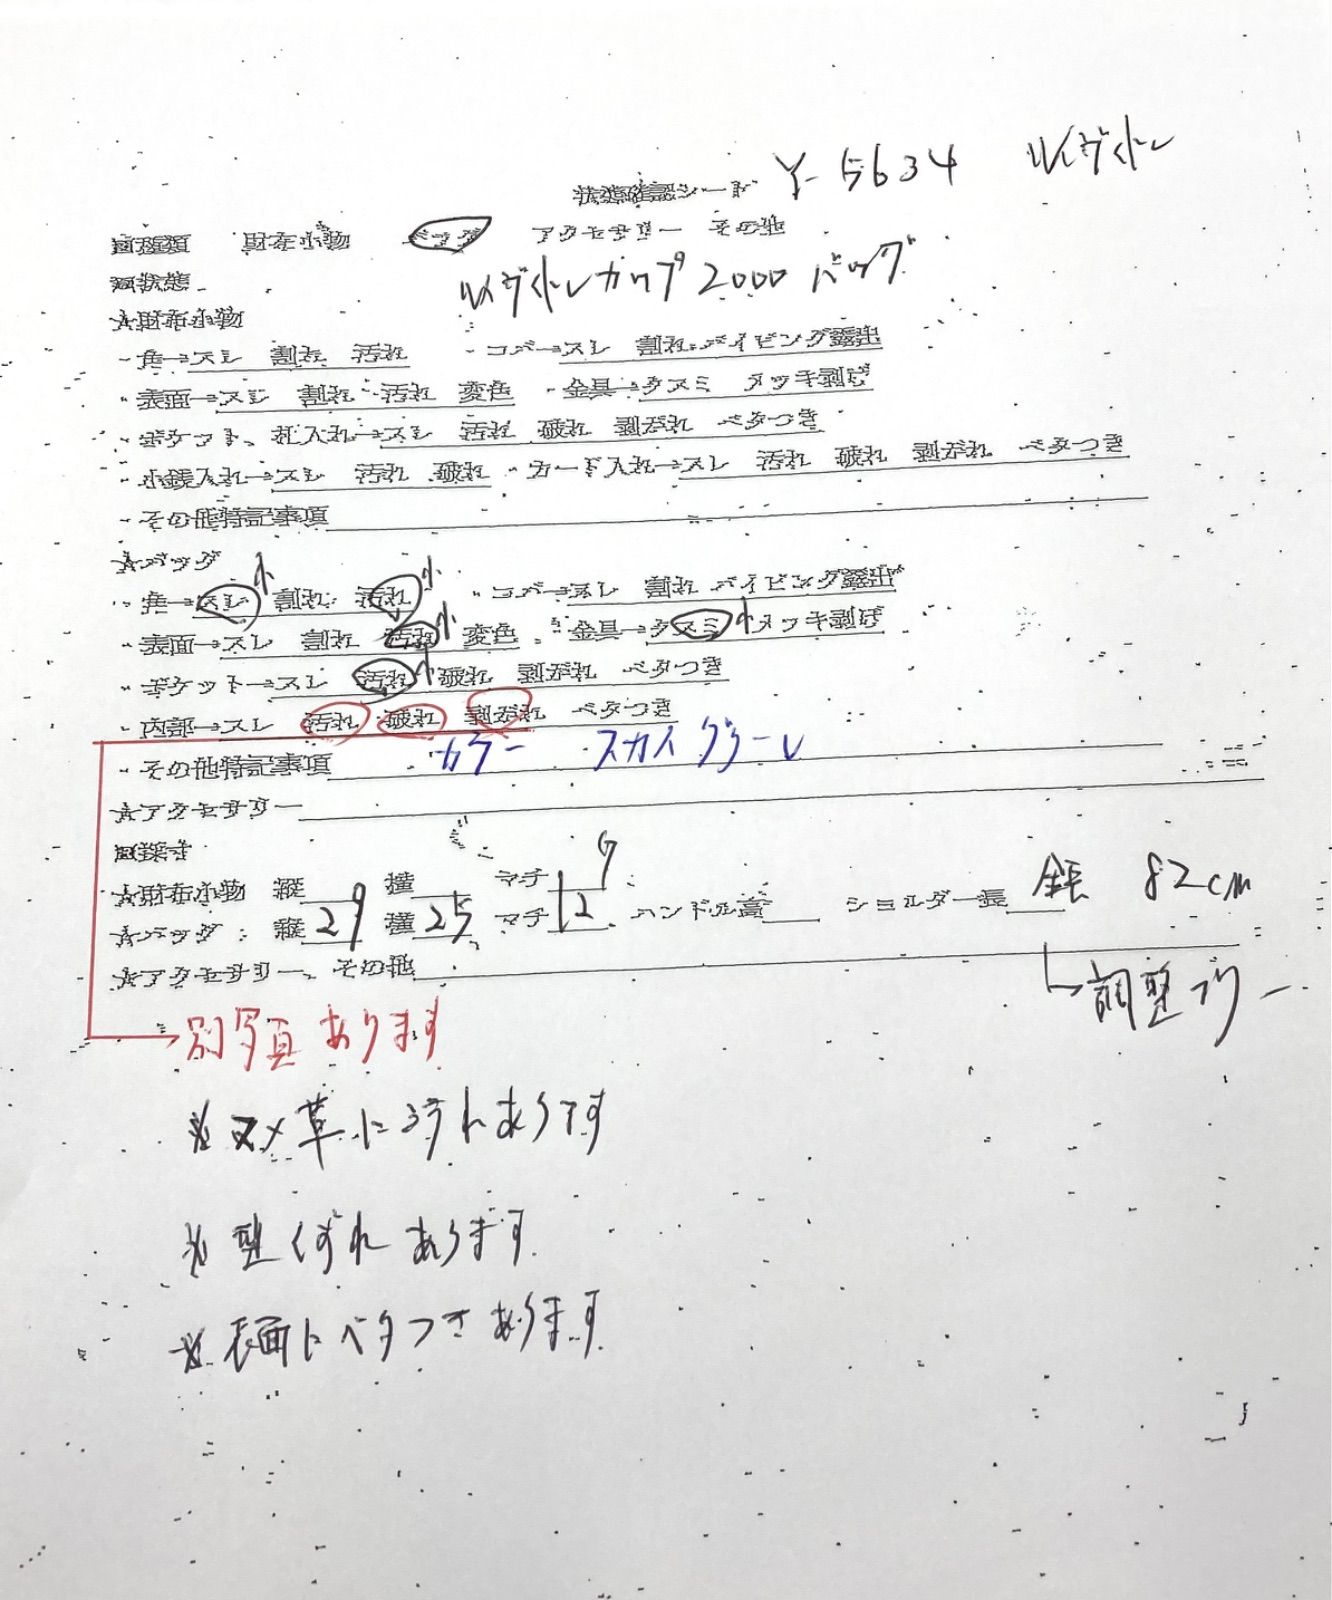 状態確認シート Y-5634 ルイヴィトン
□種類 財布小物 バッグ アクセサリー その他
□状態
ルイヴィトンカップ2000バッグ
☆財布小物
・角→スレ 割れ 汚れ ・コバ→スレ 割れ パイピング露出
・表面→スレ 割れ 汚れ 変色 ・金具→クスミ メッキ剥げ
・ポケット、札入れ→スレ 汚れ 破れ 剥がれ ベタつき
・小銭入れ→スレ 汚れ 破れ ・カード入れ→スレ 汚れ 破れ 剥がれ ベタつき
・その他特記事項
☆バッグ
・角→スレ小 割れ 汚れ小 ・コバ→スレ 割れ パイピング露出
・表面→スレ 割れ 汚れ小 変色 ・金具→クスミ小 メッキ剥げ
・ポケット→スレ 汚れ小 破れ 剥がれ ベタつき
・内部→スレ 汚れ 破れ 剥がれ ベタつき
・その他特記事項 カラー
☆アクセサリー
□採寸
☆財布小物 縦 横 マチ
☆バッグ : 縦29 横25 マチ12 ハンドル高 ショルダー長 全長 82cm
☆アクセサリー、その他
調整フリー
別写真あります
※ヌメ革に汚れあります
※型くずれあります
※表面にベタつきあります